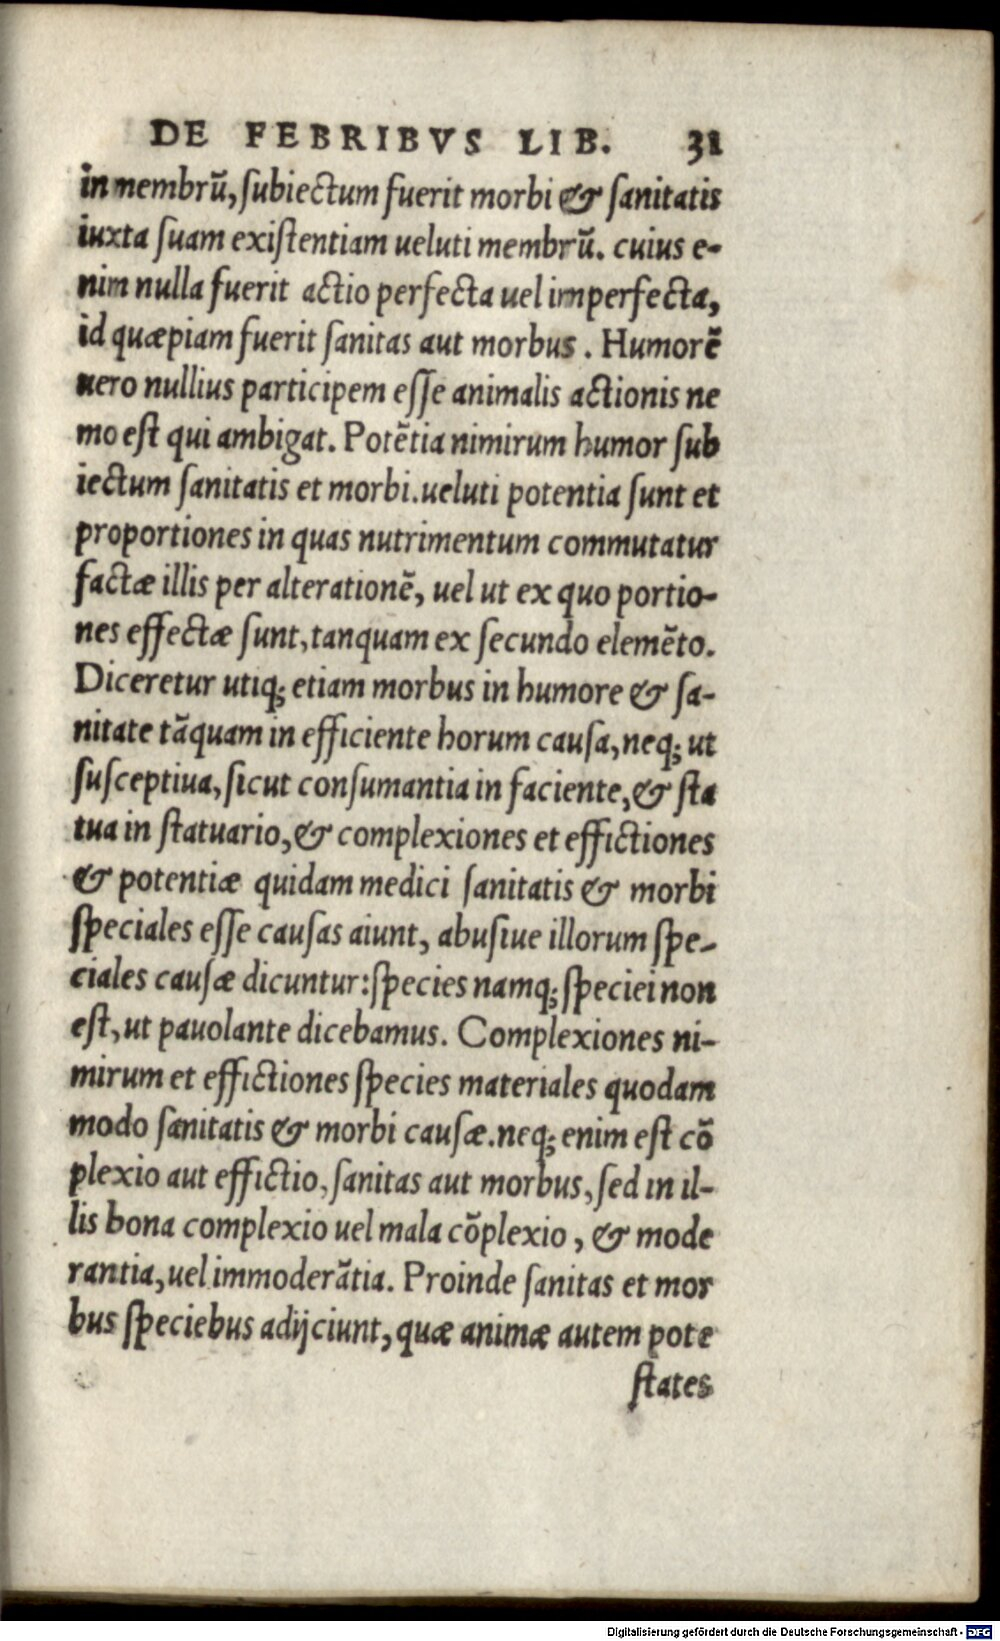 DE FEBRIBVS LIB. 31
in membrū, ſubiectum fuerit morbi & ſanitatis
iuxta ſuam exiſtentiam ueluti membrū. cuius e-
nim nulla fuerit actio perfecta uel imperfecta,
id quæpiam fuerit ſanitas aut morbus. Humorē
uero nullius participem eſſe animalis actionis ne
mo eſt qui ambigat. Potētia nimirum humor ſub
iectum ſanitatis et morbi. ueluti potentia ſunt et
proportiones in quas nutrimentum commutatur
factæ illis per alterationē, uel ut ex quo portio-
nes effectæ ſunt, tanquam ex ſecundo elemēto.
Diceretur utiq; etiam morbus in humore & ſa-
nitate tāquam in efficiente horum cauſa, neq; ut
ſuſceptiua, ſicut conſumantia in faciente, & ſta
tua in ſtatuario, & complexiones et effictiones
& potentiæ quidam medici ſanitatis & morbi
ſpeciales eſſe cauſas aiunt, abuſiue illorum ſpe-
ciales cauſæ dicuntur: ſpecies namq; ſpeciei non
eſt, ut pauolante dicebamus. Complexiones ni-
mirum et effictiones ſpecies materiales quodam
modo ſanitatis & morbi cauſæ. neq; enim eſt cō
plexio aut effictio, ſanitas aut morbus, ſed in il-
lis bona complexio uel mala cōplexio, & mode
rantia, uel immoderātia. Proinde ſanitas et mor
bus ſpeciebus adijciunt, quæ animæ autem pote
ſtates
Digitalisierung gefördert durch die Deutsche Forschungsgemeinschaft - DFG